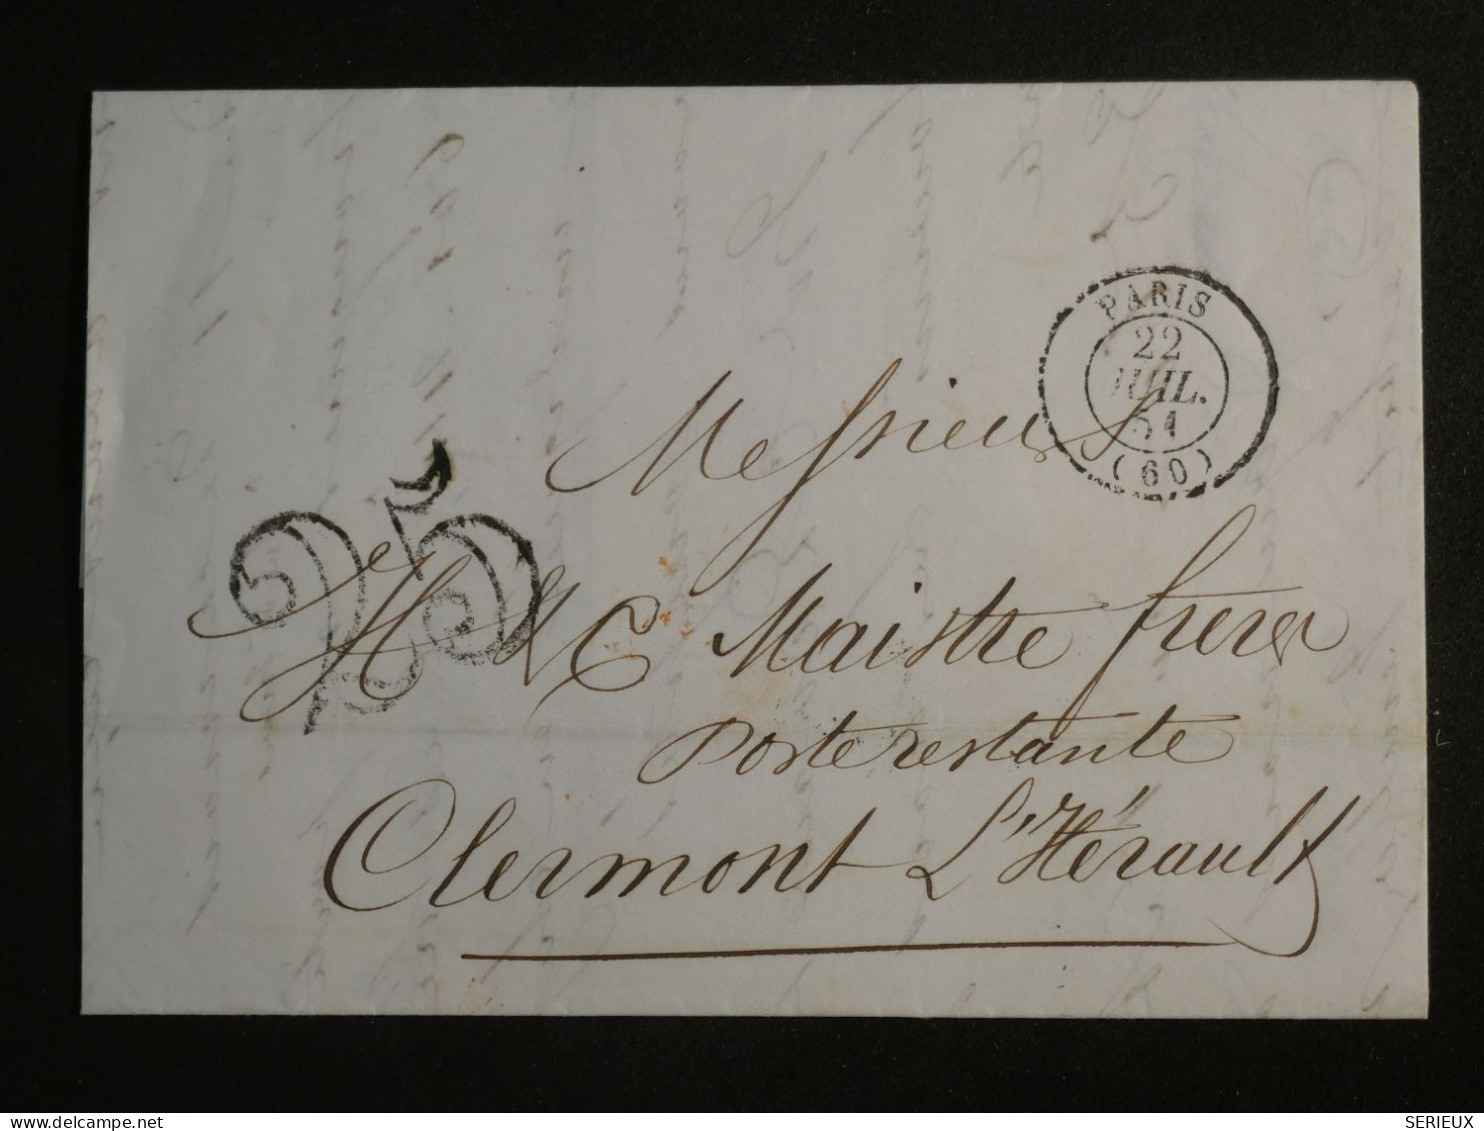 PARIS
22
JUIL.
51
(60)
25
Messieurs
H & C Maistre frères
Poste restante
Clermont L'Hérault
delcampe.net
SERIEUX